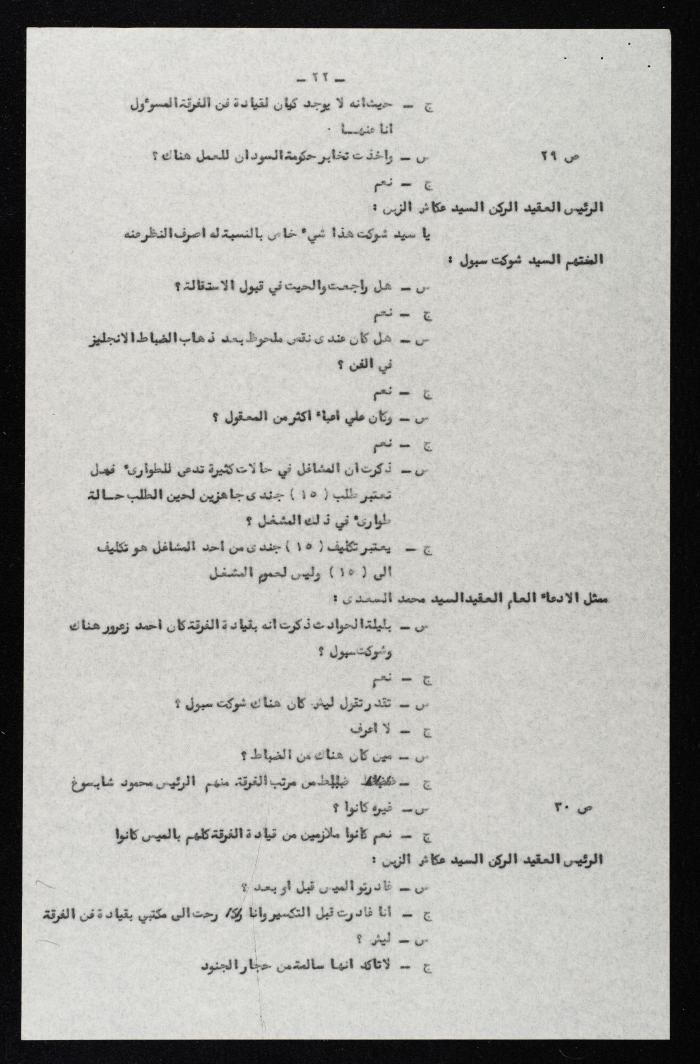 ـ ٢٢ ـ
ج ـ حيث انه لا يوجد كيان لقيادة فن الفرقة المسوءول
انا عنهـا ٠
ص ٢٩ س ـ واخذت تخابر حكومة السودان للعمل هناك ؟
ج ـ نعم
الرئيس العقيد الركن السيد عكاش الزبن :
يا سيد شوكت هذا شيء خاص بالنسبة له اصرف النظر عنه
المتهم السيد شوكت سبول :
س ـ هل راجعت والحيت في قبول الاستقالة ؟
ج ـ نعم
س ـ هل كان عندى نقص ملحوظ بعد ذهاب الضباط الانجليز
في الفن ؟
ج ـ نعم
س ـ وكان علي اعباء اكثر من المعقول ؟
ج ـ نعم
س ـ ذكرت ان المشاغل في حالات كثيرة تدعى للطوارىء فهل
تعتبر طلب ( ١٥ ) جندى جاهزين لحين الطلب حـالة
طوارىء في ذلك المشغل ؟
ج ـ يعتبر تكليف ( ١٥ ) جندى من احد المشاغل هو تكليف
الى ( ١٥ ) وليس لعموم المشغل
ممثل الادعاء العام العقيد السيد محمد السعدى :
س ـ بليلة الحوادث ذكرت انه بقيادة الفرقة كان احمد زعرور هناك
وشوكت سبول ؟
ج ـ نعم
س ـ تقدر تقول ليش كان هناك شوكت سبول ؟
ج ـ لا اعرف
س ـ مين كان هناك من الضباط ؟
ج ـ ضباط من مرتب الفرقة منهم الرئيس محمود شابسوغ
ص ٣٠ س ـ غيره كانوا ؟
ج ـ نعم كانوا ملازمين من قيادة الفرقة كلهم بالميس كانوا
الرئيس العقيد الركن السيد عكاش الزبن :
س ـ غادرتو الميس قبل او بعد ؟
ج ـ انا غادرت قبل التكسير وانا رحت الى مكتبي بقيادة فن الفرقة
س ـ ليش ؟
ج ـ لاتاكد انها سالمة من حجار الجنود